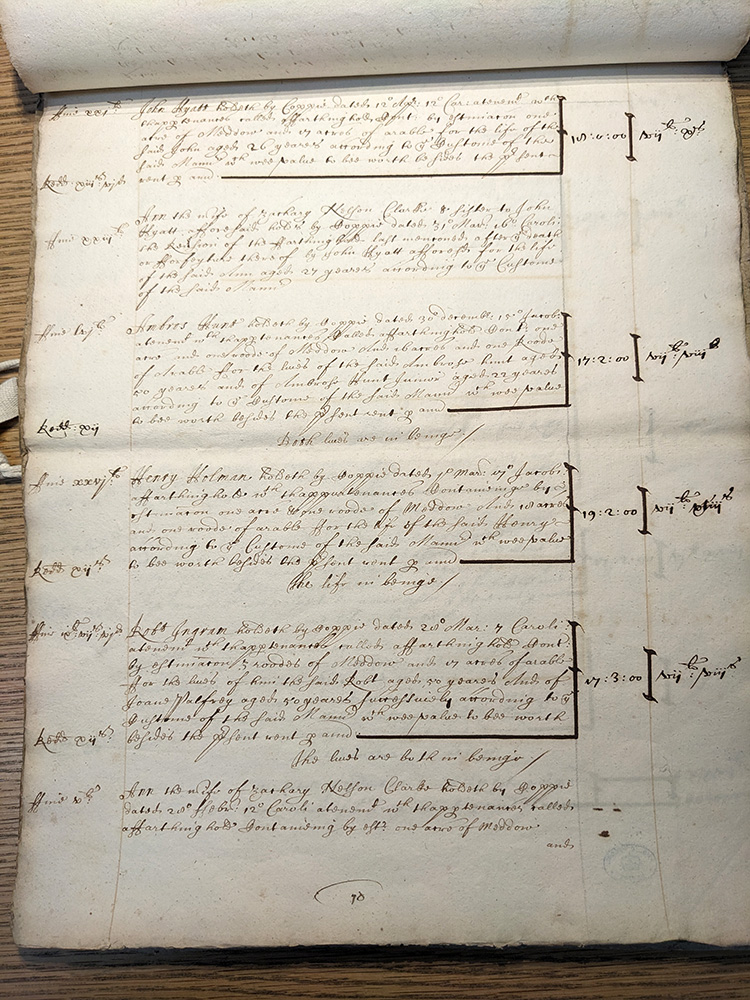 ffine xxj li John Hyatt holdeth by Coppie dated 12o Apr: 12o Car: a tenemt with
thapptenances called a ffarthinghold Cont: by estimacon one
acre of Meddow and 17 acres of arable for the life of the
said John aged 26 yeares according to ye Custome of the
said Mannr wch wee value to bee worth besides the psent 18:0:00
Redd: rent p ann
Ann the wife of Zachary Nelson Clarke & sister to John
Hyatt afforesaid holdeth by Coppie dated 31o Mar: 16o Caroli
ffine xxij li the Revsion of the ffarthinghold last mentioned after ye death
or fforfeyture thereof by John Hyatt afforesd for the life
of the said Ann aged 27 yeares according to ye Custome
of the said Mannr
ffine lvj li Ambros Hunt holdeth by Coppie dated 30o decembr: 15o Jacobi
a tenemt wth thapptenances Called a ffarthinghold Cont: one
acre and one roode of Meddow And 16 acres and one Roode
of Arable ffor the lives of the said Ambrose Hunt aged 17:2:00
50 yeares and of Ambrose Hunt Junior aged 22 yeares
according to ye Custome of the said Mannr wch wee value
Redd: xij to bee worth besides the psent rent p ann
Both lives are in beinge /
ffine xxvj li Henry Holman holdeth by Coppie dated Mar: Jacobi
a ffarthinghold wth thappurtenances Conteininge by
estimacon one acre & one roode of Meddow And 18 acres
and one roode of arable ffor the life of the said Henry 19:2:00
according to ye Custome of the said Mannr wch wee value
Redd xij s to bee worth besides the psent rent p ann
The life in beinge /
ffine Robt Ingram holdeth by Coppie dated 20o Mar: 7 Caroli
a tenemt wth thapptenances called a ffarthinghold Cont:
by estimacon 5 roodes of Meddow and 17 acres of arable
ffor the lives of him the said Robt aged 50 yeares And of 17:3:00
Joane Palfrey aged 50 yeares successively according to ye
Custome of the said Mannr wch wee value to bee worth
Redd xij s besides the psent rent p ann
The lives are both in beinge /
ffine x li Ann the wife of Zachary Nelson Clarke holdeth by Coppie
dated 20o Febr: 12o Caroli a tenemt wth thapptenances called
a ffarthinghold Contaninig by est: one acre of Meddow
and
70